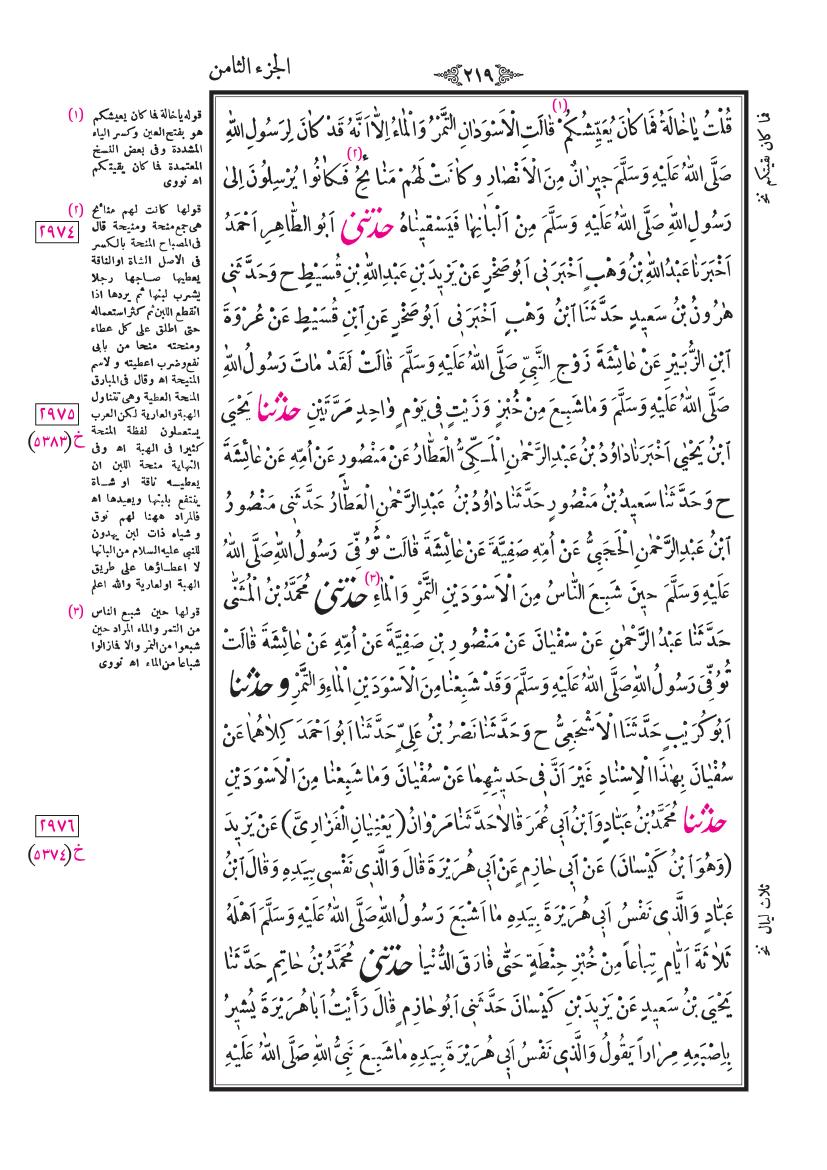 الجزء الثامن
٢١٩
قُلْتُ يَا خَالَةُ فَمَا كَانَ يُعَيِّشُكُمْ (١) قَالَتِ الْاَسْوَدَانِ التَّمْرُ وَالْمَاءُ اِلَّا اَنَّهُ قَدْ كَانَ لِرَسُولِ اللّٰهِ
صَلَّى اللّٰهُ عَلَيْهِ وَسَلَّمَ جِيرَانٌ مِنَ الْاَنْصَارِ وَكَانَتْ لَهُمْ مَنَائِحُ (٢) فَكَانُوا يُرْسِلُونَ اِلَى
رَسُولِ اللّٰهِ صَلَّى اللّٰهُ عَلَيْهِ وَسَلَّمَ مِنْ اَلْبَانِهَا فَيَسْقِينَاهُ حَدَّثَنِى اَبُو الطَّاهِرِ اَحْمَدُ
اَخْبَرَنَا عَبْدُ اللّٰهِ بْنُ وَهْبٍ اَخْبَرَنِى اَبُو صَخْرٍ عَنْ يَزِيدَ بْنِ عَبْدِ اللّٰهِ بْنِ قُسَيْطٍ ح وَحَدَّثَنِى
هٰرُونُ بْنُ سَعِيدٍ حَدَّثَنَا ابْنُ وَهْبٍ اَخْبَرَنِى اَبُو صَخْرٍ عَنِ ابْنِ قُسَيْطٍ عَنْ عُرْوَةَ
ابْنِ الزُّبَيْرِ عَنْ عَائِشَةَ زَوْجِ النَّبِيِّ صَلَّى اللّٰهُ عَلَيْهِ وَسَلَّمَ قَالَتْ لَقَدْ مَاتَ رَسُولُ اللّٰهِ
صَلَّى اللّٰهُ عَلَيْهِ وَسَلَّمَ وَمَا شَبِعَ مِنْ خُبْزٍ وَزَيْتٍ فِى يَوْمٍ وَاحِدٍ مَرَّتَيْنِ حَدَّثَنَا يَحْيَى
ابْنُ يَحْيٰى اَخْبَرَنَا دَاوُدُ بْنُ عَبْدِ الرَّحْمٰنِ الْمَكِّىُّ الْعَطَّارُ عَنْ مَنْصُورٍ عَنْ اُمِّهِ عَنْ عَائِشَةَ
ح وَحَدَّثَنَا سَعِيدُ بْنُ مَنْصُورٍ حَدَّثَنَا دَاوُدُ بْنُ عَبْدِ الرَّحْمٰنِ الْعَطَّارُ حَدَّثَنِى مَنْصُورُ
ابْنُ عَبْدِ الرَّحْمٰنِ الْحَجَبِىُّ عَنْ اُمِّهِ صَفِيَّةَ عَنْ عَائِشَةَ قَالَتْ تُوُفِّىَ رَسُولُ اللّٰهِ صَلَّى اللّٰهُ
عَلَيْهِ وَسَلَّمَ حِينَ شَبِعَ النَّاسُ مِنَ الْاَسْوَدَيْنِ التَّمْرِ وَالْمَاءِ (٣) حَدَّثَنِى مُحَمَّدُ بْنُ الْمُثَنّٰى
حَدَّثَنَا عَبْدُ الرَّحْمٰنِ عَنْ سُفْيَانَ عَنْ مَنْصُورِ بْنِ صَفِيَّةَ عَنْ اُمِّهِ عَنْ عَائِشَةَ قَالَتْ
تُوُفِّىَ رَسُولُ اللّٰهِ صَلَّى اللّٰهُ عَلَيْهِ وَسَلَّمَ وَقَدْ شَبِعْنَا مِنَ الْاَسْوَدَيْنِ الْمَاءِ وَالتَّمْرِ وحَدَّثَنَا
اَبُو كُرَيْبٍ حَدَّثَنَا الْاَشْجَعِىُّ ح وَحَدَّثَنَا نَصْرُ بْنُ عَلِىٍّ حَدَّثَنَا اَبُو اَحْمَدَ كِلَاهُمَا عَنْ
سُفْيَانَ بِهٰذَا الْاِسْنَادِ غَيْرَ اَنَّ فِى حَدِيثِهِمَا عَنْ سُفْيَانَ وَمَا شَبِعْنَا مِنَ الْاَسْوَدَيْنِ
حَدَّثَنَا مُحَمَّدُ بْنُ عَبَّادٍ وَابْنُ اَبِى عُمَرَ قَالَا حَدَّثَنَا مَرْوَانُ (يَعْنِيَانِ الْفَزَارِىَّ) عَنْ يَزِيدَ
(وَهُوَ ابْنُ كَيْسَانَ) عَنْ اَبِى حَازِمٍ عَنْ اَبِى هُرَيْرَةَ قَالَ وَالَّذِى نَفْسِى بِيَدِهِ وَقَالَ ابْنُ
عَبَّادٍ وَالَّذِى نَفْسُ اَبِى هُرَيْرَةَ بِيَدِهِ مَا اَشْبَعَ رَسُولُ اللّٰهِ صَلَّى اللّٰهُ عَلَيْهِ وَسَلَّمَ اَهْلَهُ
ثَلَاثَةَ اَيَّامٍ تِبَاعاً مِنْ خُبْزِ حِنْطَةٍ حَتّٰى فَارَقَ الدُّنْيَا حَدَّثَنِى مُحَمَّدُ بْنُ حَاتِمٍ حَدَّثَنَا
يَحْيَى بْنُ سَعِيدٍ عَنْ يَزِيدَ بْنِ كَيْسَانَ حَدَّثَنِى اَبُو حَازِمٍ قَالَ رَاَيْتُ اَبَا هُرَيْرَةَ يُشِيرُ
بِاِصْبَعِهِ مِرَاراً يَقُولُ وَالَّذِى نَفْسُ اَبِى هُرَيْرَةَ بِيَدِهِ مَا شَبِعَ نَبِىُّ اللّٰهِ صَلَّى اللّٰهُ عَلَيْهِ
فما كان يقيتكم نخ
ثلاث ليال نخ
(١) قوله يا خالة فما كان يعيشكم
هو بفتح العين وكسر الياء
المشددة وفى بعض النسخ
المعتمدة فما كان يقيتكم
اه نووى
(٢) قولها كانت لهم منائح
هى جمع منحة ومنيحة قال
فى المصباح المنحة بالكسر
فى الاصل الشاة او الناقة
يعطيها صاحبها رجلا
يشرب لبنها ثم يردها اذا
انقطع اللبن ثم كثر استعماله
حتى اطلق على كل عطاء
ومنحته منحا من بابى
نفع وضرب اعطيته والاسم
المنيحة اه وقال فى المبارق
المنحة العطية وهى تتناول
الهبة والعارية لكن العرب
يستعملون لفظة المنحة
كثيرا فى الهبة اه وفى
النهاية منحة اللبن ان
يعطيه ناقة او شاة
ينتفع بلبنها ويعيدها اه
فالمراد ههنا لهم نوق
و شياه ذات لبن يهدون
للنبى عليه السلام من البانها
لا اعطاؤها على طريق
الهبة او العارية والله اعلم
(٣) قولها حين شبع الناس
من التمر والماء المراد حين
شبعوا من التمر والا فمازالوا
شباعا من الماء اه نووى
٢٩٧٤
٢٩٧٥
خ (٥٣٨٣)
٢٩٧٦
خ (٥٣٧٤)